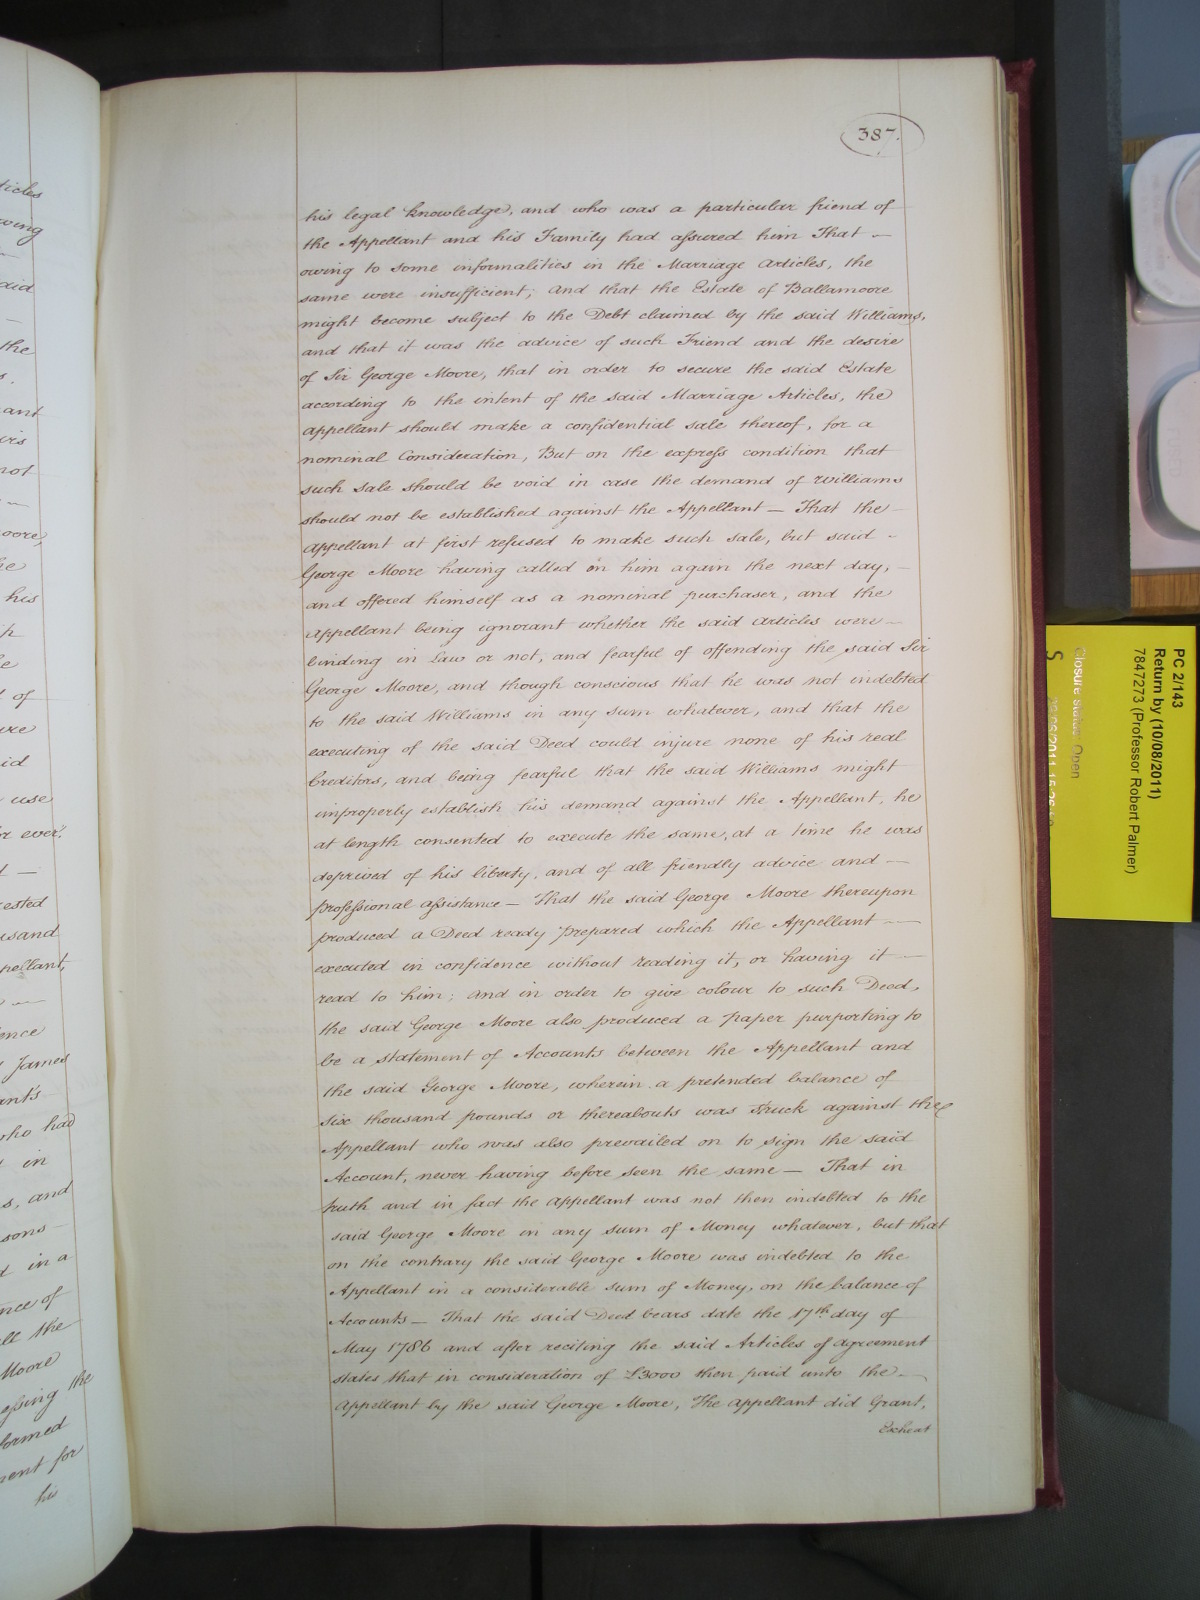 387.
his legal knowledge, and who was a particular friend of
the Appellant and his Family had assured him That —
owing to some informalities in the Marriage Articles, the
same were insufficient; And that the Estate of Ballamoore
might become subject to the Debt claimed by the said Williams,
and that it was the advice of such Friend and the desire
of Sir George Moore, that in order to secure the said Estate
according to the intent of the said Marriage Articles, the
Appellant should make a confidential sale thereof, for a
nominal Consideration, But on the express condition that
such sale should be void in case the demand of Williams
should not be established against the Appellant — That the —
Appellant at first refused to make such sale, but said -
George Moore having called on him again the next day, —
and offered himself as a nominal purchaser, and the
Appellant being ignorant whether the said Articles were —
binding in Law or not, and fearful of offending the said Sir
George Moore, and though conscious that he was not indebted
to the said Williams in any sum whatever, and that the
executing of the said Deed could injure none of his real
Creditors, and being fearful that the said Williams might
improperly establish his demand against the Appellant, he
at length consented to execute the same, at a time he was
deprived of his liberty, and of all friendly advice and —
professional assistance — That the said George Moore thereupon
produced a Deed ready prepared which the Appellant —
executed in confidence without reading it, or having it —
read to him; and in order to give colour to such Deed,
the said George Moore also produced a paper purporting to
be a statement of Accounts between the Appellant and
the said George Moore, wherein a pretended balance of
six thousand pounds or thereabouts was struck against the
Appellant who was also prevailed on to sign the said
Account, never having before seen the same — That in
truth and in fact the Appellant was not then indebted to the
said George Moore in any sum of Money whatever, but that
on the contrary the said George Moore was indebted to the
Appellant in a considerable sum of Money, on the balance of
Accounts — That the said Deed bears date the 17th day of
May 1786 and after reciting the said Articles of agreement
states that in consideration of £3000 then paid unto the —
Appellant by the said George Moore, The Appellant did Grant,
Escheat
ticles
wing
said
the
ant
not
oore,
he
his
of
use
for ever.
ested
usand
pellant,
ence
James
ant's
who had
in
s, and
sons
in a
nce of
all the
Moore
essing the
formed
ment for
his
PC 2/143
Return by (10/08/2011)
7847273 (Professor Robert Palmer)
Closure status: Open
S